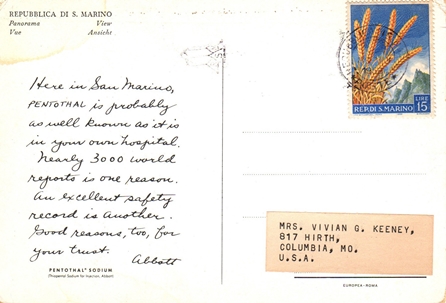 REPUBBLICA DI S. MARINO
Panorama View
Vue Ansicht
Here in San Marino,
PENTOTHAL is probably
as well known as it is
in your own hospital.
Nearly 3000 world
reports is one reason.
An excellent safety
record is another.
Good reasons, too, for
your trust.
Abbott
PENTOTHAL® SODIUM
(Thiopental Sodium for Injection, Abbott)
LIRE
15
REP. DI S. MARINO
MRS. VIVIAN G. KEENEY,
817 HIRTH,
COLUMBIA, MO.
U.S.A.
EUROPEA-ROMA